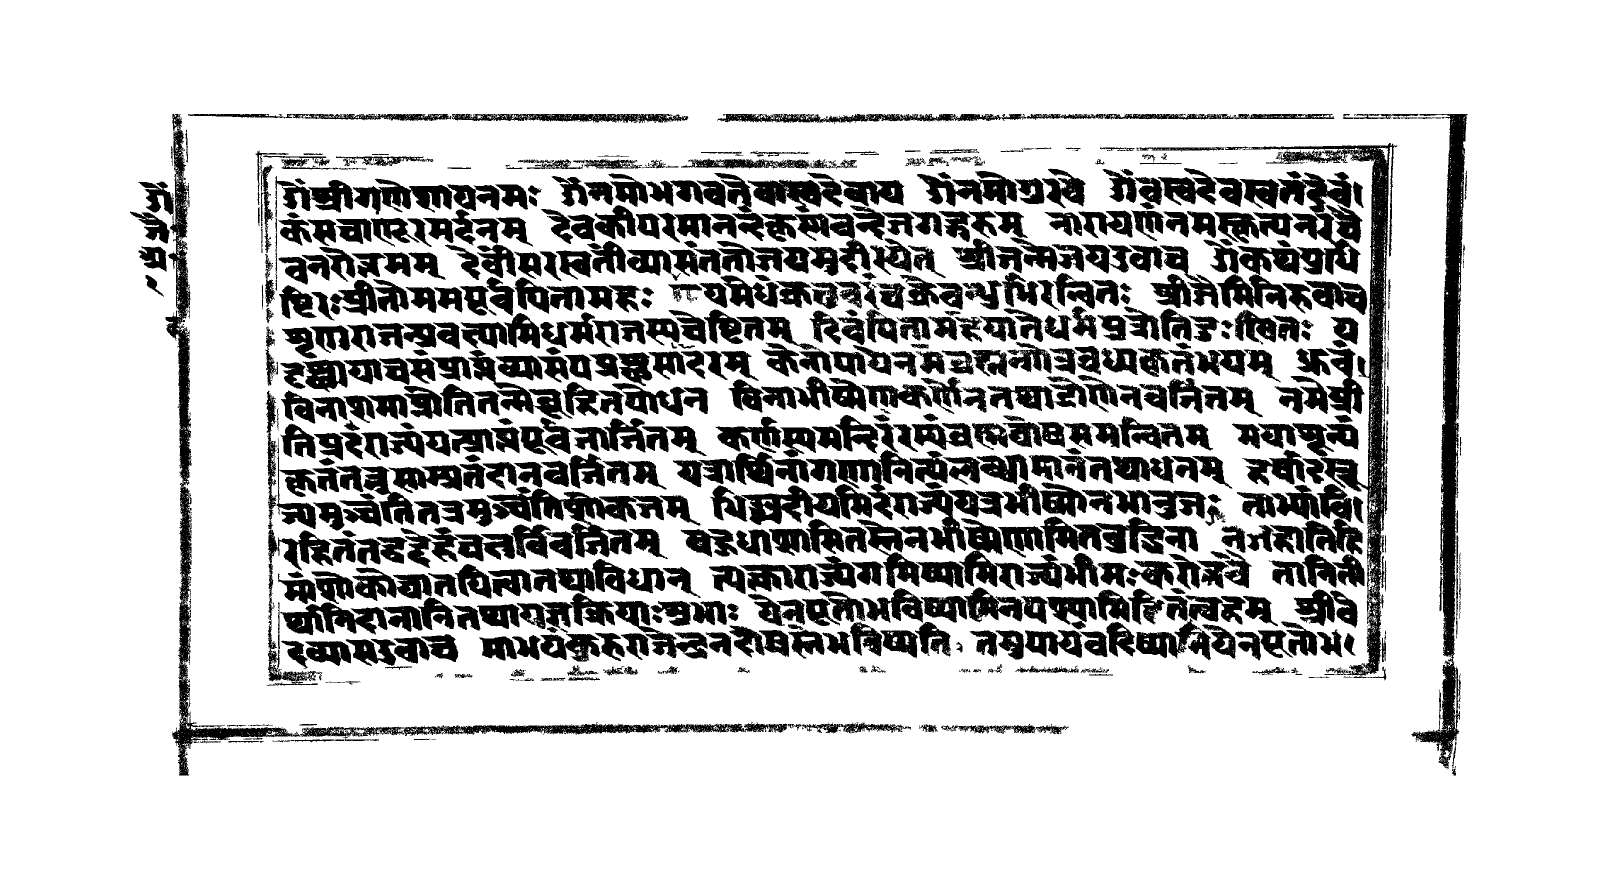 ओंश्रीगणेशायनमः ओंनमोभगवतेवासुदेवाय ओंनमोगुरवे ओंवसुदेवसुतंदेवं।
कंसचाणूरमर्दनम् देवकीपरमानन्दंकृष्णंवन्देजगद्गुरुम् नारायणंनमस्कृत्यनरंचै
वनरोत्तमम् देवींसरस्वतींव्यासंततोजयमुदीरयेत् श्रीजन्मेजयउवाच ओंकथंयुधि
ष्ठिरःश्रीतोममपूर्वपितामहः हयमेधंक्रतुवरंचक्रेबन्धुभिरन्वितः श्रीजैमिनिरुवाच
शृणुराजन्प्रवक्ष्यामिधर्मराजस्यचेष्टितम् दिवंपितामहेयातेधर्मपुत्रोतिदुःखितः य
दृच्छयाचसंप्राप्तंव्यासंपप्रच्छसादरम् केनोपायेन गोत्रवध्यकृतंभयम् ध्रुवं।
विनाशमाप्नोतितन्मेब्रूहितपोधन विनाभीष्मेणकर्णेनतथाद्रोणेनवर्जितम् नमेप्री
तिप्रदंराज्यंयत्प्राप्तंपूर्वजार्जितम् कर्णस्यमन्दिरंरम्यंब्रह्मघोषसमन्वितम् मयाशून्यं
कृतंतत्तुसाम्प्रतंदानवर्जितम् यत्रार्थिनांगणानित्यंलब्ध्वामानंतथाधनम् हर्षादस्रू
ण्यमुञ्चंतितत्रमुञ्चंतिशोकजम् धिग्मदीयमिदंराज्यंयत्रभीष्मोनभानुजः ताभ्यांवि।
रहितंतद्वद्देहंचक्षुर्विवर्जितम् बहुधाशासितस्तेनभीष्मेणामितबुद्धिना नजहातिहि
मांशोकोघातयित्वातथाविधान् त्यक्त्वाराज्यंगमिष्यामिराज्यंभीमःकरोतुवै तानिती
र्थानिदानानितथायज्ञक्रियाःशुभाः येनपूतोभविष्यामिनपश्यामिहितंत्वहम् श्रीवे
दव्यासउवाच माभयंकुरुराजेन्द्रनदोषस्तेभविष्यति तमुपायंवदिष्यामियेनपूतोभ।